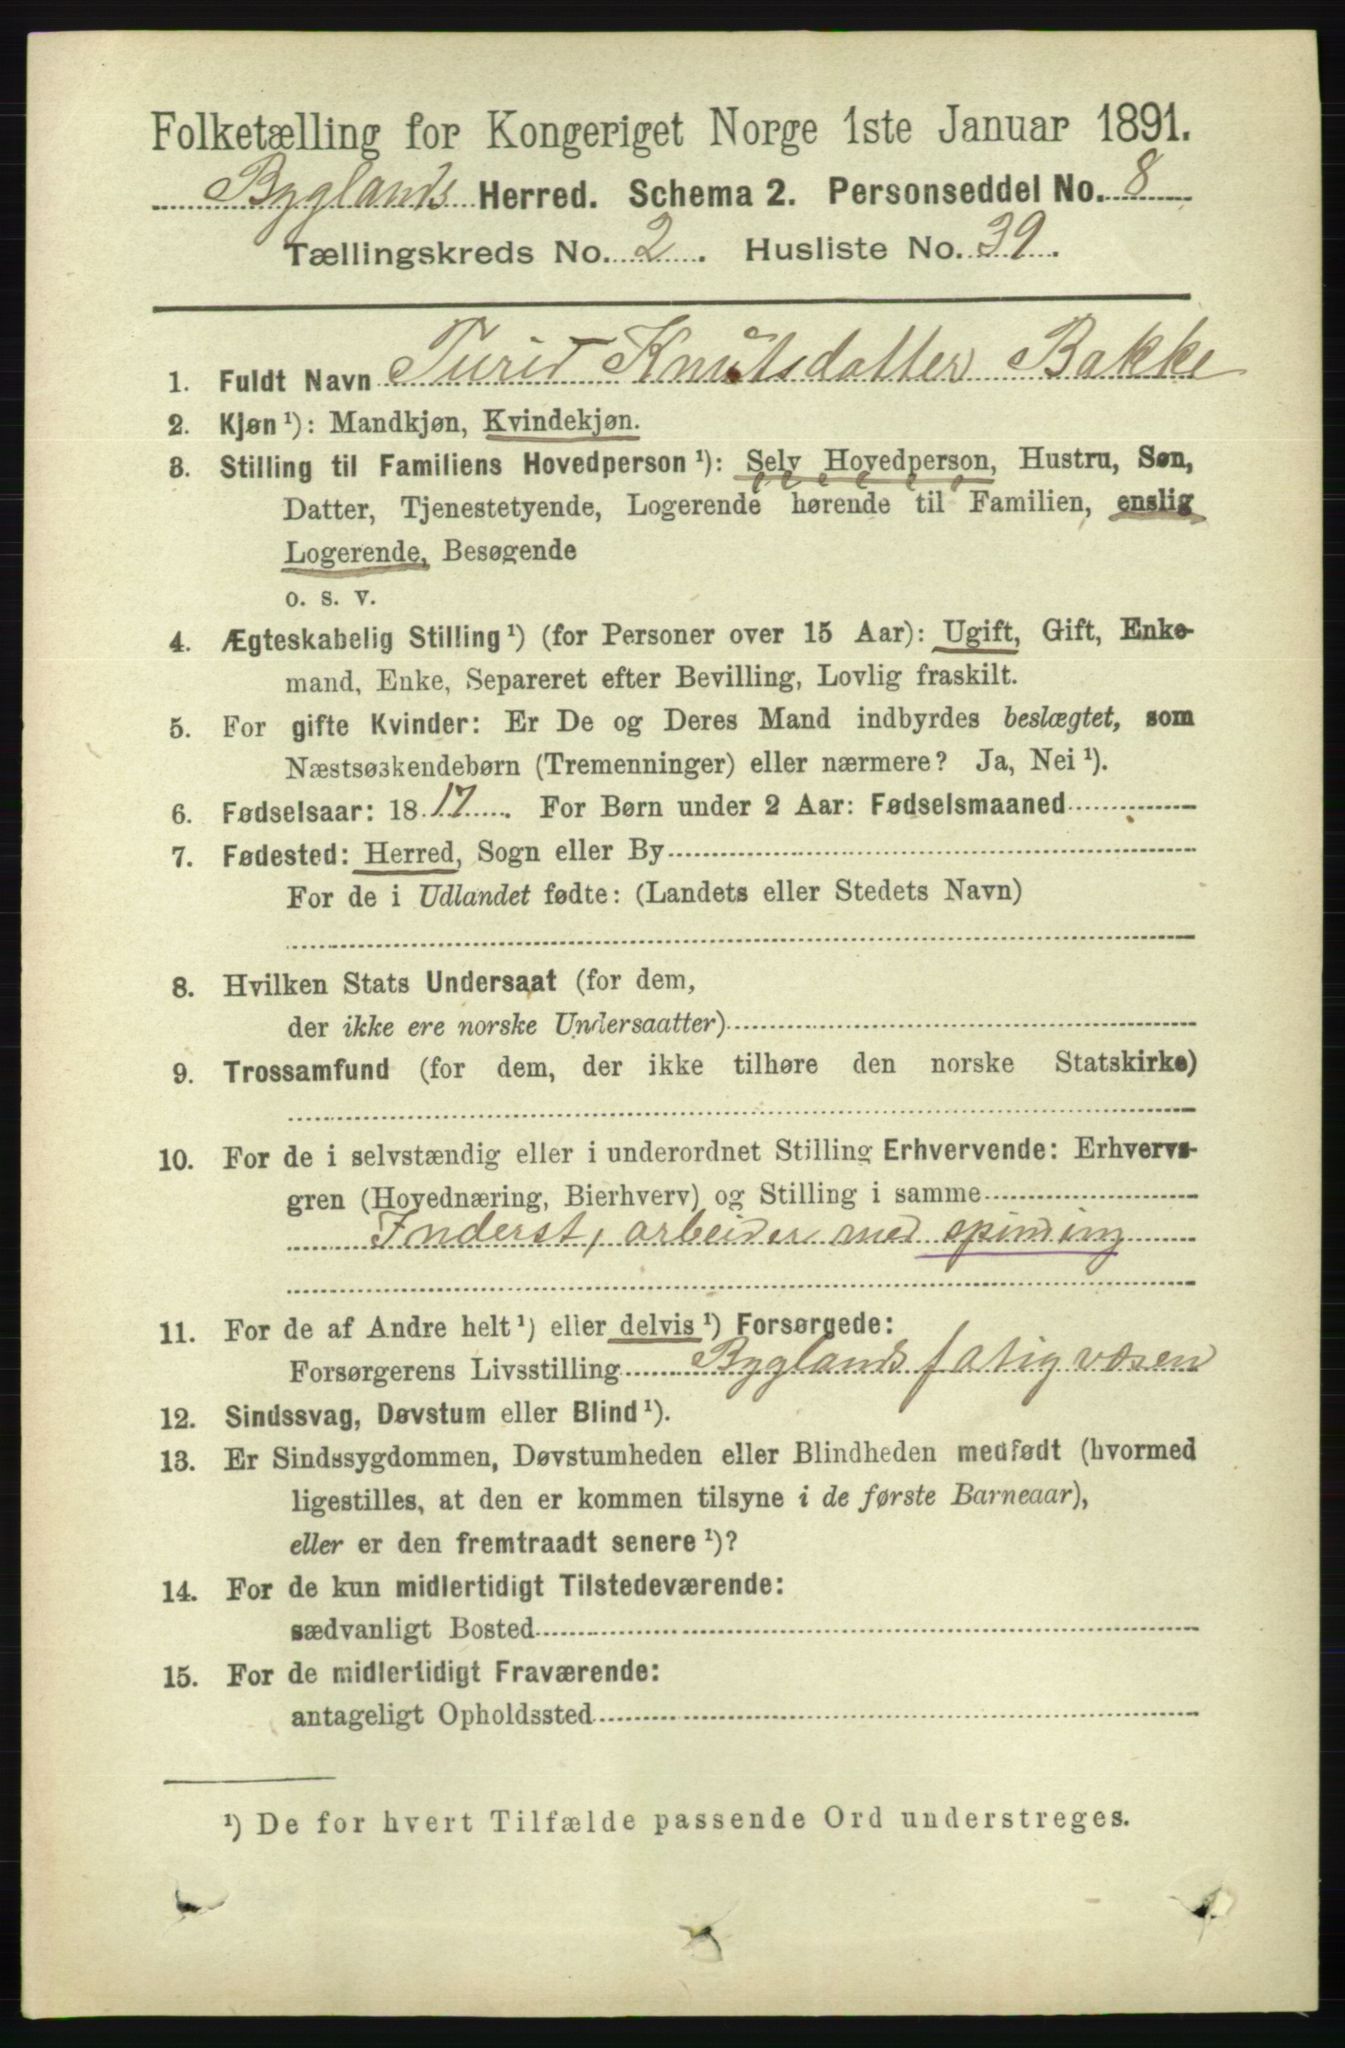 Folketælling for Kongeriget Norge 1ste Januar 1891.
Byglands Herred. Schema 2. Personseddel No. 8
Tællingskreds No. 2. Husliste No. 39.
1. Fuldt Navn Turid Knutsdatter Bakke
2. Kjøn¹): Mandkjøn, Kvindekjøn.
3. Stilling til Familiens Hovedperson¹): Selv Hovedperson, Hustru, Søn,
Datter, Tjenestetyende, Logerende hørende til Familien, enslig
Logerende, Besøgende
o. s. v.
4. Ægteskabelig Stilling¹) (for Personer over 15 Aar): Ugift, Gift, Enke-
mand, Enke, Separeret efter Bevilling, Lovlig fraskilt.
5. For gifte Kvinder: Er De og Deres Mand indbyrdes beslægtet, som
Næstsøskendebørn (Tremenninger) eller nærmere? Ja, Nei¹).
6. Fødselsaar: 1817. For Børn under 2 Aar: Fødselsmaaned
7. Fødested: Herred, Sogn eller By
For de i Udlandet fødte: (Landets eller Stedets Navn)
8. Hvilken Stats Undersaat (for dem,
der ikke ere norske Undersaatter)
9. Trossamfund (for dem, der ikke tilhøre den norske Statskirke)
10. For de i selvstændig eller i underordnet Stilling Erhvervende: Erhvervs-
gren (Hovednæring, Bierhverv) og Stilling i samme
Inderst, arbeider med spinding
11. For de af Andre helt¹) eller delvis¹) Forsørgede:
Forsørgerens Livsstilling Byglands fatigvæsen
12. Sindssvag, Døvstum eller Blind¹).
13. Er Sindssygdommen, Døvstumheden eller Blindheden medfødt (hvormed
ligestilles, at den er kommen tilsyne i de første Barneaar),
eller er den fremtraadt senere¹)?
14. For de kun midlertidigt Tilstedeværende:
sædvanligt Bosted
15. For de midlertidigt Fraværende:
antageligt Opholdssted
¹) De for hvert Tilfælde passende Ord understreges.